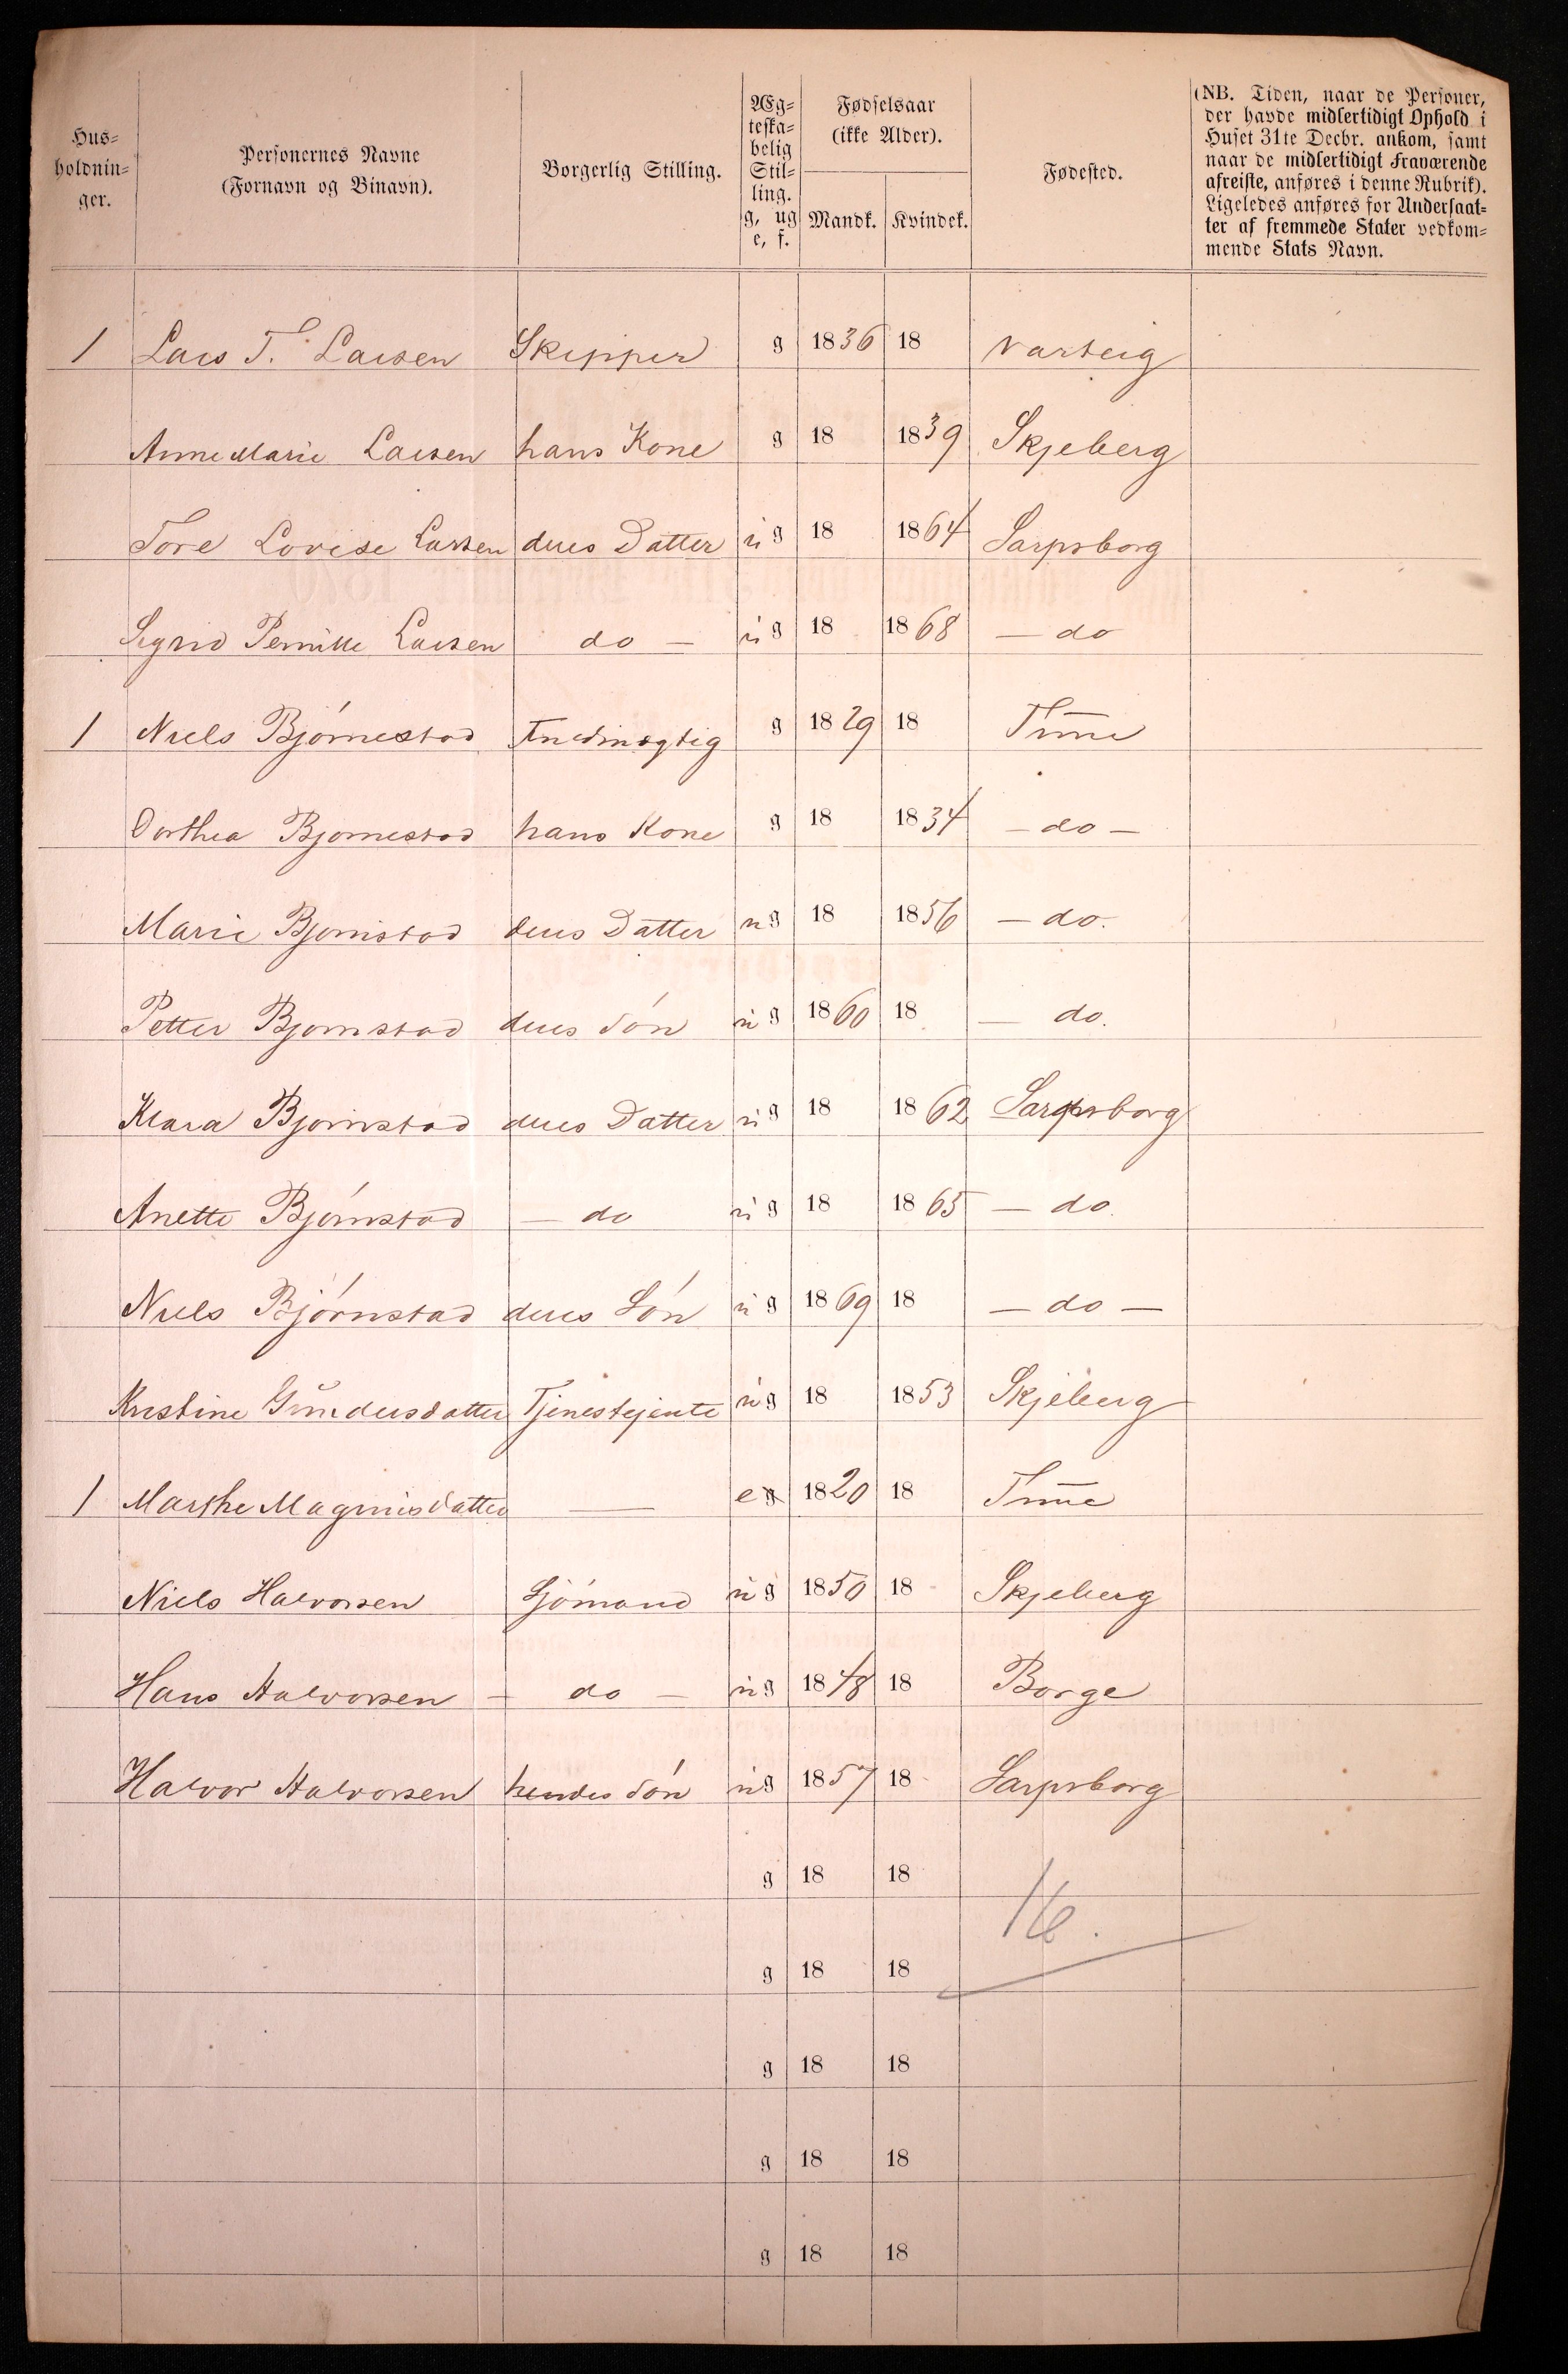 Hus-
holdnin-
ger.
Personernes Navne
(Fornavn og Binavn).
Borgerlig Stilling.
Æg-
teska-
belig
Stil-
ling.
g, ug
e, f.
Fødselsaar
(ikke Alder).
Mandk. Kvindek.
Fødested.
(NB. Tiden, naar de Personer,
der havde midlertidigt Ophold i
Huset 31te Decbr. ankom, samt
naar de midlertidigt Fraværende
afreiste, anføres i denne Rubrik).
Ligeledes anføres for Undersaat-
ter af fremmede Stater vedkom-
mende Stats Navn.
1 Lars T. Larsen Skipper g 1836 18 Varteig
Anne Marie Larsen hans Kone g 18 1839 Skjeberg
Tore Lovise Larsen deres Datter ug 18 1864 Sarpsborg
Sigrid Pernille Larsen do — ug 18 1868 — do
1 Niels Björnestad Fuldmægtig g 1829 18 Tune
Dorthea Bjornestad hans Kone g 18 1834 — do —
Marie Bjornstad deres Datter ug 18 1856 — do.
Petter Bjornstad deres Sön ug 1860 18 — do.
Klara Bjornstad deres Datter ug 18 1862 Sarpsborg
Anette Björnstad — do ug 18 1865 — do.
Niels Björnstad deres Sön ug 1869 18 — do —
Kristine Gundersdatter Tjenestejente ug 18 1853 Skjeberg
1 Marthe Magnusdatter — e g 1820 18 Tune
Niels Halvorsen Sjömand ug 1850 18 Skjeberg
Hans Halvorsen — do — ug 1848 18 Borge
Halvor Halvorsen hendes Sön ug 1857 18 Sarpsborg
g 18 18
16.
g 18 18
g 18 18
g 18 18
g 18 18